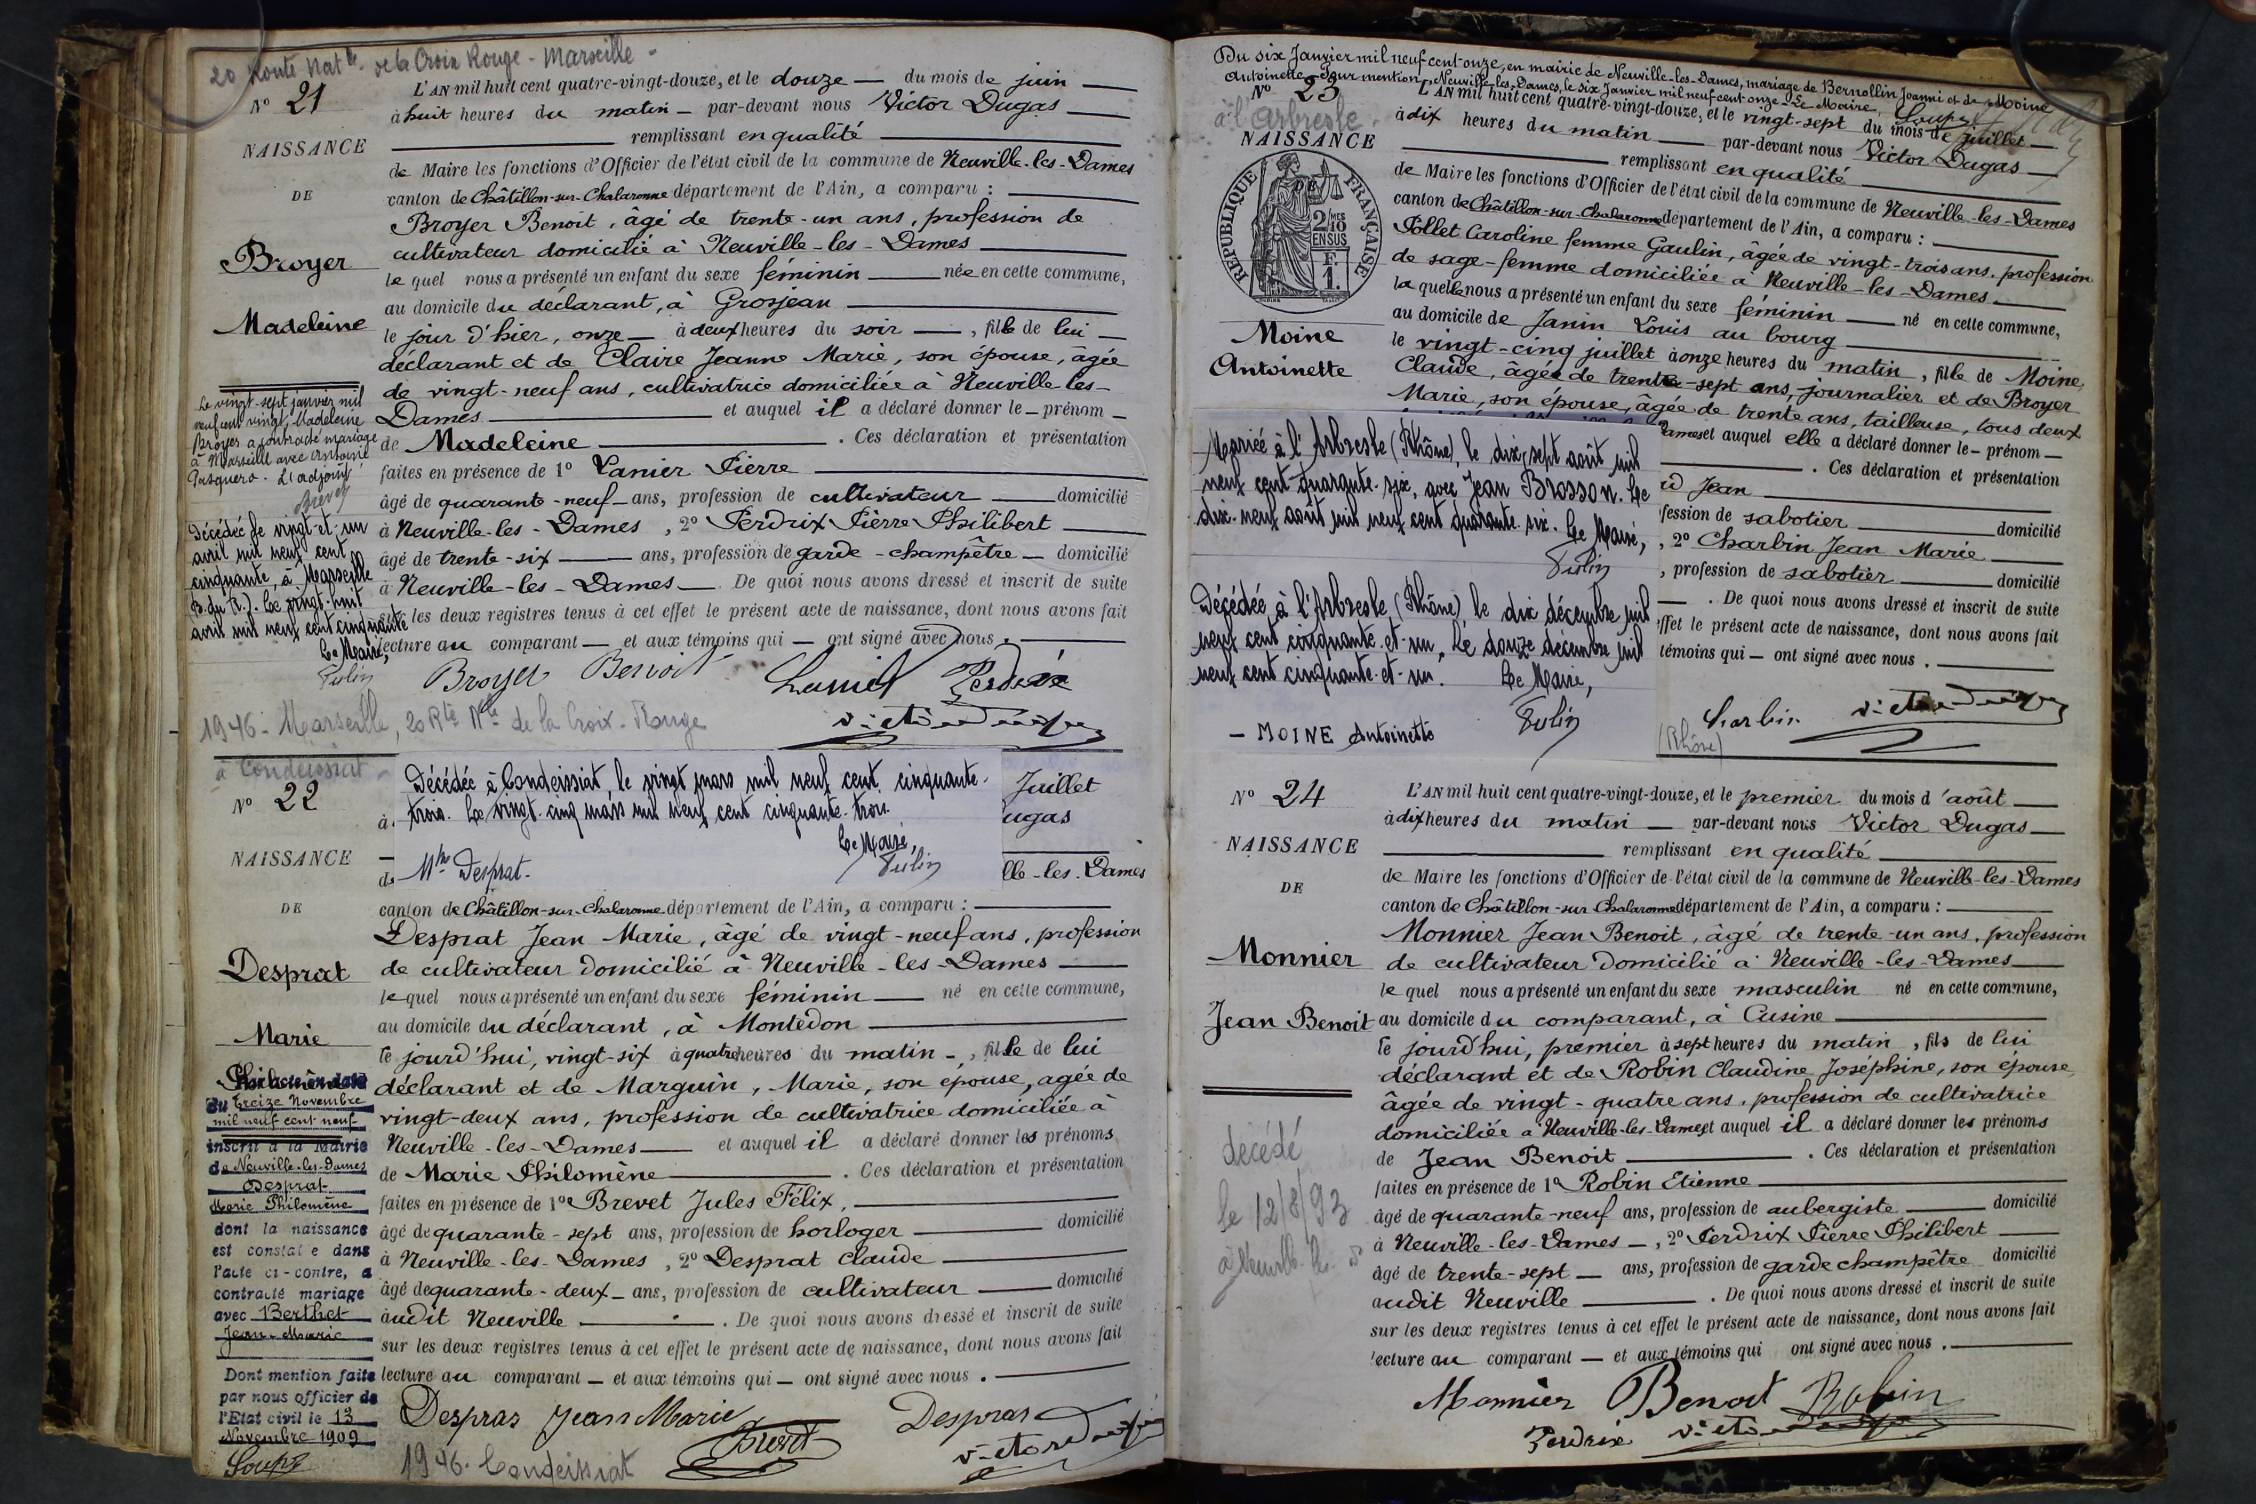 20 Route Nat^le de la Croix Rouge - Marseille -
N° 21
NAISSANCE
DE
Broyer
Madeleine
Le vingt-sept janvier mil
neuf cent vingt, Madeleine
Broyer a contracté mariage
à Marseille avec Antoine
Pasquero. L'adjoint
Brevet
Décédée le vingt-et-un
avril mil neuf cent
cinquante, à Marseille
(B. du R.). Le vingt-huit
avril mil neuf cent cinquante
Le Maire,
L'AN mil huit cent quatre-vingt-douze, et le douze — du mois de juin —
à huit heures du matin — par-devant nous Victor Dugas —
remplissant en qualité
de Maire les fonctions d'Officier de l'état civil de la commune de Neuville-les-Dames
canton de Châtillon-sur-Chalaronne département de l'Ain, a comparu :
Broyer Benoit, âgé de trente-un ans, profession de
cultivateur domicilié à Neuville-les-Dames
le quel nous a présenté un enfant du sexe féminin — née en cette commune,
au domicile du déclarant, à Grosjean
le jour d'hier, onze — à deux heures du soir —, fille de lui —
déclarant et de Claire Jeanne Marie, son épouse, agée
de vingt-neuf ans, cultivatrice domiciliée à Neuville-les-
Dames — et auquel il a déclaré donner le — prénom —
de Madeleine — . Ces déclaration et présentation
faites en présence de 1° Lanier Pierre
âgé de quarante-neuf — ans, profession de cultivateur — domicilié
à Neuville-les-Dames, 2° Perdrix Pierre Philibert
âgé de trente-six — ans, profession de garde-champêtre — domicilié
à Neuville-les-Dames — De quoi nous avons dressé et inscrit de suite
sur les deux registres tenus à cet effet le présent acte de naissance, dont nous avons fait
lecture au comparant — et aux témoins qui — ont signé avec nous .
Broyer Benoit Laniet Perdrix
1946 - Marseille, 20 Rte Nle de la Croix-Rouge
à Condeissiat -
N° 22
NAISSANCE
DE
Desprat
Marie
Philomène
Par acte en date
du treize Novembre
mil neuf cent neuf
inscrit à la Mairie
de Neuville-les-Dames
Desprat
Marie Philomène
dont la naissance
est constat e dans
l'acte ci-contre, a
contracté mariage
avec Berthet
Jean-Marie
Dont mention faite
par nous officier de
l'Etat civil le 13
Novembre 1909
Soupe
Décédée à Condeissiat, le vingt mars mil neuf cent cinquante-
trois. Le vingt-cinq mars mil neuf cent cinquante-trois.
Le Maire,
Desprat.
Juillet
ugas
lle-les-Dames
canton de Châtillon-sur-Chalaronne département de l'Ain, a comparu :
Desprat Jean Marie, âgé de vingt-neuf ans, profession
de cultivateur domicilié à Neuville-les-Dames
le quel nous a présenté un enfant du sexe féminin — né en cette commune,
au domicile du déclarant, à Montédon
le jourd'hui, vingt-six à quatre heures du matin —, fille de lui
déclarant et de Marguin, Marie, son épouse, agée de
vingt-deux ans, profession de cultivatrice domiciliée à
Neuville-les-Dames — et auquel il a déclaré donner les prénoms
de Marie Philomène — . Ces déclaration et présentation
faites en présence de 1° Brevet Jules Félix,
âgé de quarante-sept ans, profession de horloger — domicilié
à Neuville-les-Dames, 2° Desprat Claude
âgé de quarante-deux — ans, profession de cultivateur — domicilié
audit Neuville — . De quoi nous avons dressé et inscrit de suite
sur les deux registres tenus à cet effet le présent acte de naissance, dont nous avons fait
lecture au comparant — et aux témoins qui — ont signé avec nous .
Despras Jean Marie Despras
Brevet
1946. Condeissiat
Du six Janvier mil neuf-cent-onze, en mairie de Neuville-les-Dames, mariage de Bernollin Joanni et de Moine
Antoinette. Pour mention, Neuville-les-Dames, le six Janvier mil neuf-cent-onze. Le Maire, Soupe
N° 23
à l'Arbresle -
NAISSANCE
DE
RÉPUBLIQUE FRANÇAISE
2/10 MES
EN SUS
F.
1.
Moine
Antoinette
L'AN mil huit cent quatre-vingt-douze, et le vingt-sept du mois de juillet —
à dix heures du matin — par-devant nous Victor Dugas —
remplissant en qualité
de Maire les fonctions d'Officier de l'état civil de la commune de Neuville-les-Dames
canton de Châtillon-sur-Chalaronne département de l'Ain, a comparu :
Pollet Caroline femme Gaulin, âgée de vingt-trois ans, profession
de sage-femme domiciliée à Neuville-les-Dames
la quelle nous a présenté un enfant du sexe féminin — né en cette commune,
au domicile de Janin Louis au bourg
le vingt-cinq juillet à onze heures du matin, fille de Moine,
Claude, âgée de trente-sept ans, journalier et de Broyer
Marie, son épouse, âgée de trente ans, tailleuse, tous deux
Dames et auquel elle a déclaré donner le — prénom —
. Ces déclaration et présentation
Jean
fession de sabotier — domicilié
, 2° Charbin Jean Marie
, profession de sabotier — domicilié
. De quoi nous avons dressé et inscrit de suite
effet le présent acte de naissance, dont nous avons fait
témoins qui — ont signé avec nous .
Mariée à l'Arbresle (Rhône), le dix-sept août mil
neuf cent quarante-six, avec Jean Brosson. Le
dix-neuf août mil neuf cent quarante-six. Le Maire,
Décédée à l'Arbresle (Rhône) le dix décembre mil
neuf cent cinquante-et-un. Le douze décembre mil
neuf cent cinquante-et-un. Le Maire,
- MOINE Antoinette
(Rhône)
Charbin
N° 24
NAISSANCE
DE
Monnier
Jean Benoit
décédé
le 12/8/93
à Neuville-les-D
L'AN mil huit cent quatre-vingt-douze, et le premier du mois d'août —
à dix heures du matin — par-devant nous Victor Dugas —
remplissant en qualité
de Maire les fonctions d'Officier de l'état civil de la commune de Neuville-les-Dames
canton de Châtillon-sur-Chalaronne département de l'Ain, a comparu :
Monnier Jean Benoit, âgé de trente-un ans, profession
de cultivateur domicilié à Neuville-les-Dames
le quel nous a présenté un enfant du sexe masculin né en cette commune,
au domicile du comparant, à Cusine
le jourd'hui, premier à sept heures du matin, fils de lui
déclarant et de Robin Claudine Joséphine, son épouse,
âgée de vingt-quatre ans, profession de cultivatrice
domiciliée à Neuville-les-Dames et auquel il a déclaré donner les prénoms
de Jean Benoit — . Ces déclaration et présentation
faites en présence de 1° Robin Etienne
âgé de quarante-neuf ans, profession de aubergiste — domicilié
à Neuville-les-Dames —, 2° Perdrix Pierre Philibert
âgé de trente-sept — ans, profession de garde champêtre domicilié
audit Neuville — . De quoi nous avons dressé et inscrit de suite
sur les deux registres tenus à cet effet le présent acte de naissance, dont nous avons fait
lecture au comparant — et aux témoins qui ont signé avec nous .
Monnier Benoit Robin
Perdrix